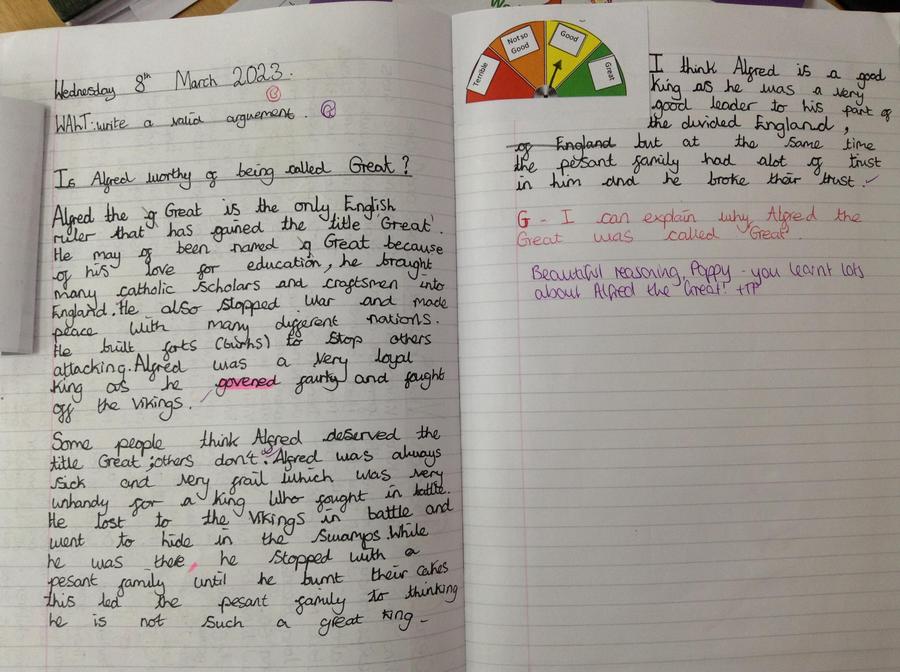 Wednesday 8th March 2023.
WALT: write a valid arguement.
Is Alfred worthy of being called Great?
Alfred the g Great is the only English
ruler that has gained the title 'Great'.
He may of been named g Great because
of his love for education, he brought
many catholic scholars and craftsmen into
England. He also stopped war and made
peace with many different nations.
He built forts (burhs) to stop others
attacking. Alfred was a very loyal
king as he govened fairly and fought
off the Vikings.
Some people think Alfred deserved the
title Great; others don't. Alfred was always
sick and very frail which was very
unhandy for a king who fought in battle.
He lost to the Vikings in battle and
went to hide in the swamps. While
he was there, he stopped with a
pesant family until he burnt their cakes
this led the pesant family to thinking
he is not such a great king -
Terrible
Not so
Good
Good
Great
I think Alfred is a good
king as he was a very
good leader to his part of
the divided England,
of England but at the same time
the pesant family had alot of trust
in him and he broke their trust.
G - I can explain why Alfred the
Great was called 'Great'.
Beautiful reasoning, Poppy - you learnt lots
about Alfred the Great! +TP